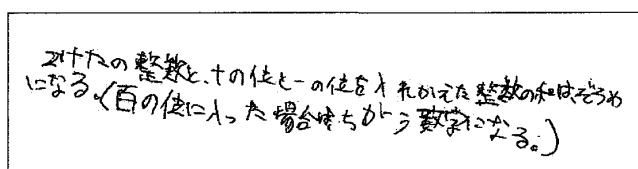 2けたの整数と、十の位と一の位を入れかえた整数の和は、ぞろめ
になる。(百の位に入った場合はちがう数字になる。)